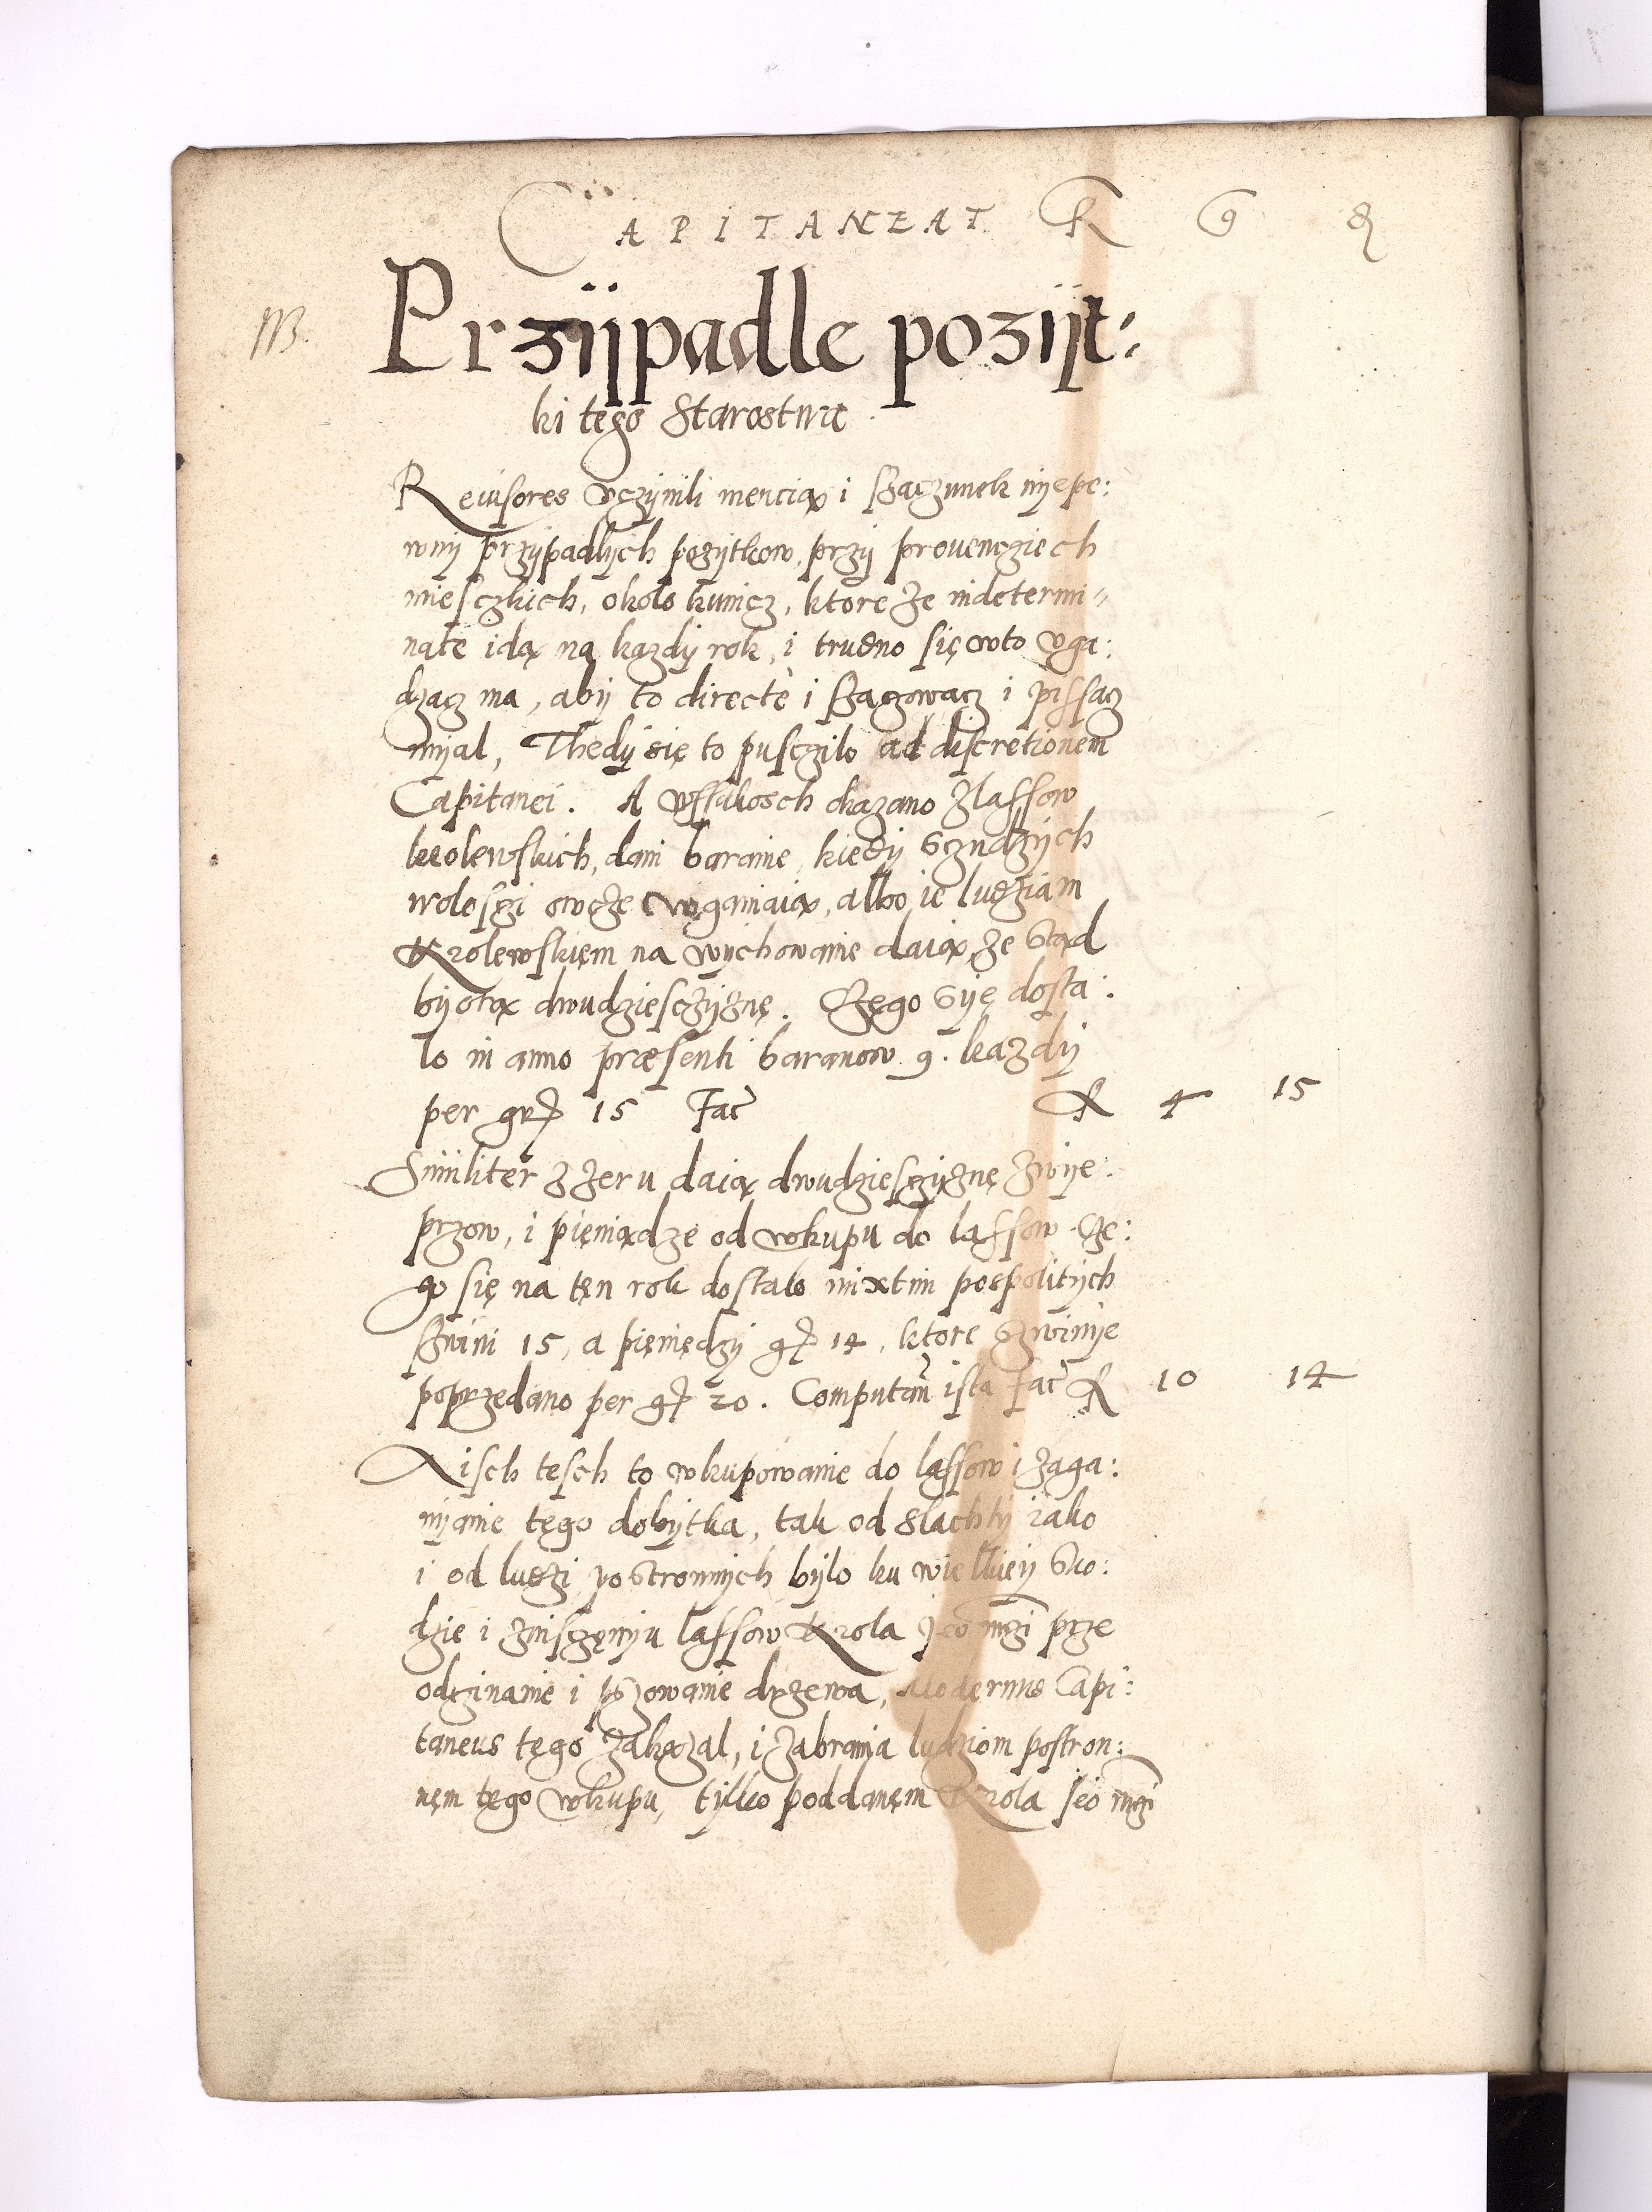 CAPITANEAT R G d
NB.
Przÿpadle pozÿt:
ki tego Starostwa
Reuisores vczÿnili mencią i szaczunek nyepe:
wnÿ przÿpadlych pozytkow, przÿ prouencziech
miesczkich, około kunicz, ktore że indetermi=
nate idą na każdÿ rok, i trudno się wto vga:
dzacz ma, abÿ to directè i szaczowacz i pissacz
myal, Thedÿ się to pusczilo ad discretionem
Capitanei. A okazano z lassow
krolewskich, dani baranie, kiedÿ Gzudzÿch
wolosczi owcze wganiaią, albo ie ludziam
Krolewskięm na wÿchowanie daią, że Gtąd
byorą dwudziesczÿznę. Czego Gyę dosta:
lo in anno præsenti baranow 9. każdÿ
per gr 15 Fac R 4 15
Similiter z żeru daią dwudziesczÿznę z wye:
przow, i pięniądze od wkupu do lassow. Cze:
go się na tęn rok dostalo mixtim pospolitych
szwini 15, a pięniędzÿ gr 14, ktore Gzwinye
poprzedano per gr 20. Computam ista fac R 10 14
Aisch tesch to wkupowanie do lassow i zaga:
nyanie tęgo dobÿtka, tak od slachtÿ iako
i od ludzi postronnych bylo ku wielkieÿ Gko:
dzie i zniszczęnyu lassow Krola Jeo mczi prze
odczinanie i psowanie drzewa, Modernus Capi:
taneus tęgo zakazal, i zabrania ludziom postron:
nęm tęgo wkupu, tÿlko poddanęm Krola Jeo mczi